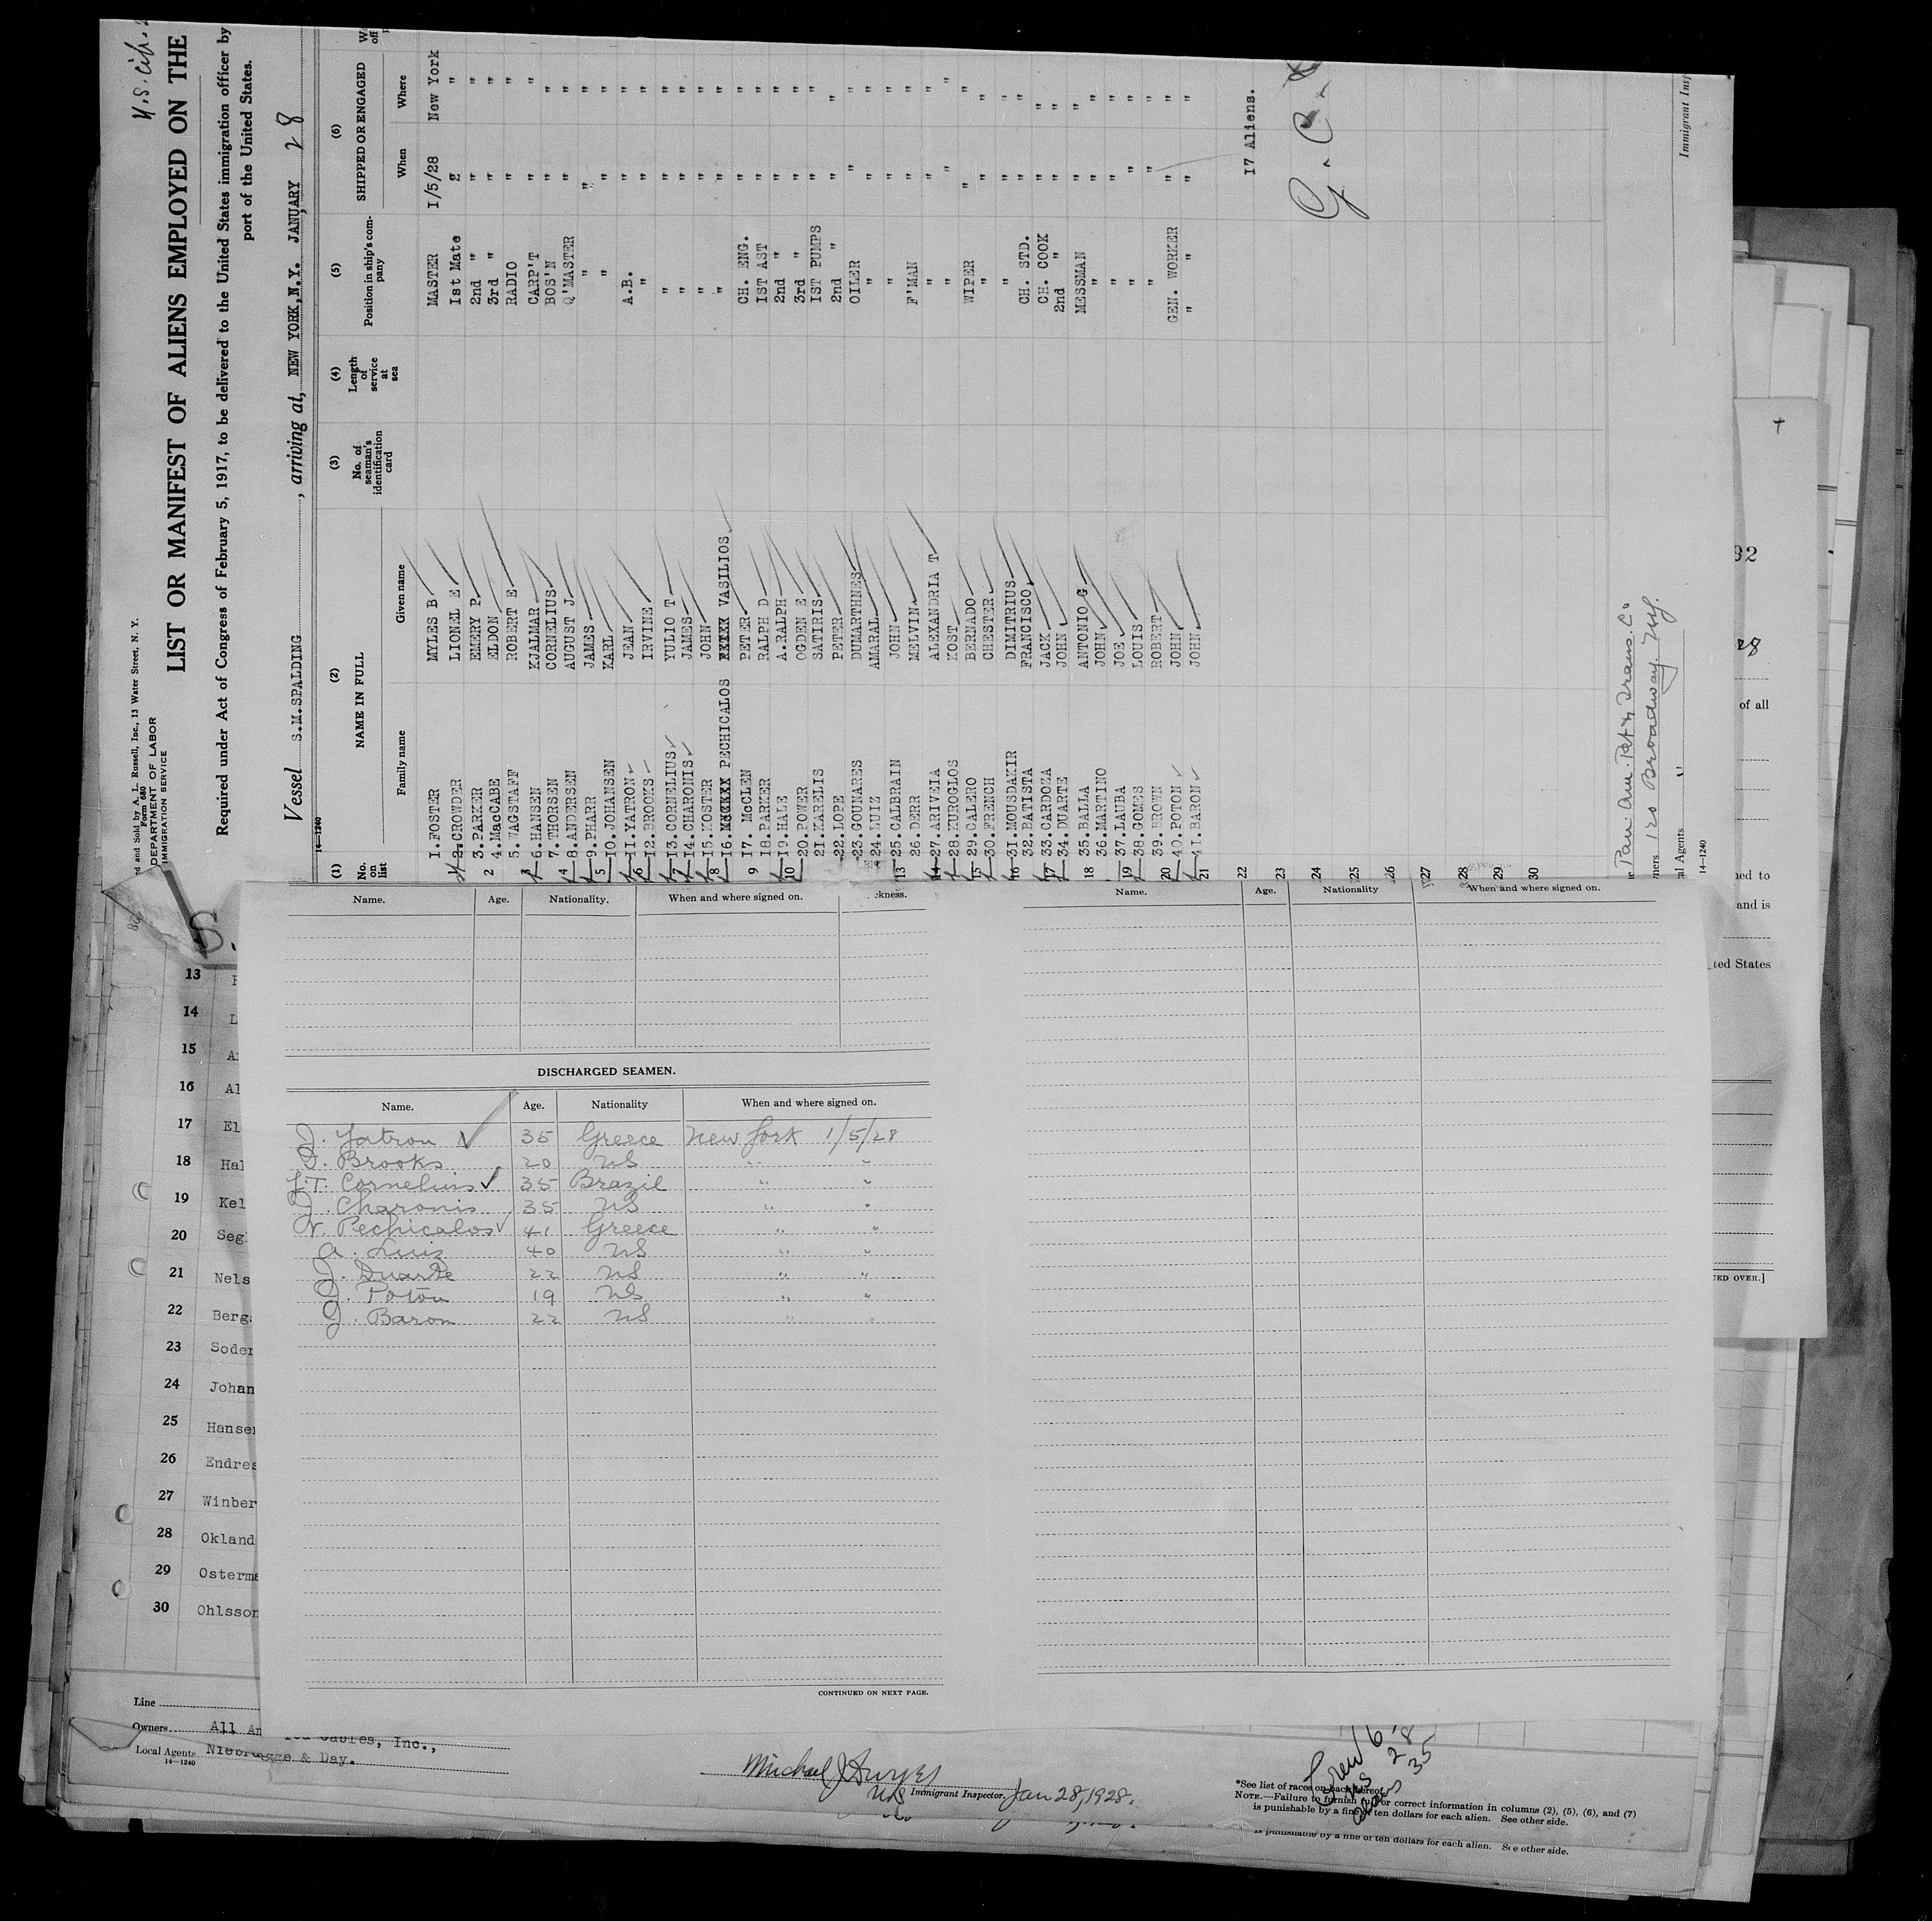 U.S. Cit.
ed and Sold by A. L. Russell, Inc., 13 Water Street, N. Y.
Form 680
DEPARTMENT OF LABOR
IMMIGRATION SERVICE
LIST OR MANIFEST OF ALIENS EMPLOYED ON THE
Required under Act of Congress of February 5, 1917, to be delivered to the United States immigration officer by
port of the United States.
Vessel S.M.SPALDING, arriving at, NEW YORK,N.Y. JANUARY 28
14-1240
(1) (2) (3) (4) (5) (6)
No. on list NAME IN FULL No. of seaman's identification card Length of service at sea Position in ship's company SHIPPED OR ENGAGED
Family name Given name When Where
1.FOSTER MYLES B MASTER 1/5/28 New York
2.CROWDER LIONEL E 1st Mate " "
3.PARKER EMERY P 2nd " " "
4.MacCABE ELDON 3rd " " "
5.WAGSTAFF ROBERT E RADIO " "
6.HANSEN KJALMAR CARP'T " "
7.THORSEN CORNELIUS BOS'N " "
8.ANDERSEN AUGUST J Q'MASTER " "
9.PHARR JAMES " " "
10.JOHANSEN KARL " " "
11.YATRON JEAN A.B. " "
12.BROOKS IRVINE " " "
13.CORNELIUS YULIO T " " "
14.CHARONIS JAMES " " "
15.KOSTER JOHN " " "
16. PECHICALOS VASILIOS " " "
17. McCLEN PETER CH. ENG. " "
18.PARKER RALPH D IST AST " "
19.HALE A.RALPH 2nd " " "
20.POWER OGDEN E 3rd " " "
21 KAELIS SATIRIS IST PUMPS " "
22.LOPE PETER 2nd " " "
23.GOUNARES DUMARTHNES OILER " "
24.LUIZ AMARAL " " "
25.CALBRAIN JOHN " " "
26.DERR MELVIN F'MAN " "
27.ARIVEIA ALEXANDRIA T " " "
28.KUROGLOS KOST " " "
29.CALERO BERNADO WIPER " "
30.FRENCH CHESTER " " "
31.MOUSDAKIR DIMITRIUS " " "
32.BATISTA FRANCISCO CH. STD. " "
33.CARDOZA JACK CH. COOK " "
34.DUARTE JOHN 2nd " " "
35.BALLA ANTONIO G MESSMAN " "
36.MARTINO JOHN " " "
37.LAUBA JOE " " "
38.GOMES LOUIS " " "
39.BROWN ROBERT " " "
40.POTON JOHN GEN. WORKER " "
41.BARON JOHN " " " "
17 Aliens.
Pan Am. Pet & Trans. Co
120 Broadway NY.
al Agents "
14-1240
Immigrant Insp
Name. Age. Nationality. When and where signed on. Name. Age. Nationality When and where signed on.
DISCHARGED SEAMEN.
Name. Age. Nationality When and where signed on.
J. Yatron 35 Greece New York 1/5/28
I. Brooks 20 US " "
Y.T. Cornelius 35 Brazil " "
J. Charonis 35 US " "
V. Pechicalos 41 Greece " "
A. Luiz 40 US " "
J. Duarte 22 US " "
J. Poton 19 US " "
J. Baron 22 US " "
CONTINUED ON NEXT PAGE.
13
14
15
16 Al
17 El
18 Hal
19 Kel
20 Seg
21 Nels
22 Berg
23 Soder
24 Johan
25 Hanse
26 Endres
27 Winber
28 Okland
29 Osterma
30 Ohlsson
Line
Owners All An Cables, Inc.,
Local Agents & Day.
14-1240
Michael J Dwyer
US Immigrant Inspector. Jan 28, 1928.
Crew 6
US 28
35
*See list of races on back hereof.
NOTE.—Failure to furnish full or correct information in columns (2), (5), (6), and (7)
is punishable by a fine of ten dollars for each alien. See other side.
is punishable by a fine of ten dollars for each alien. See other side.
of all
ned to
and is
ted States
UED OVER.]